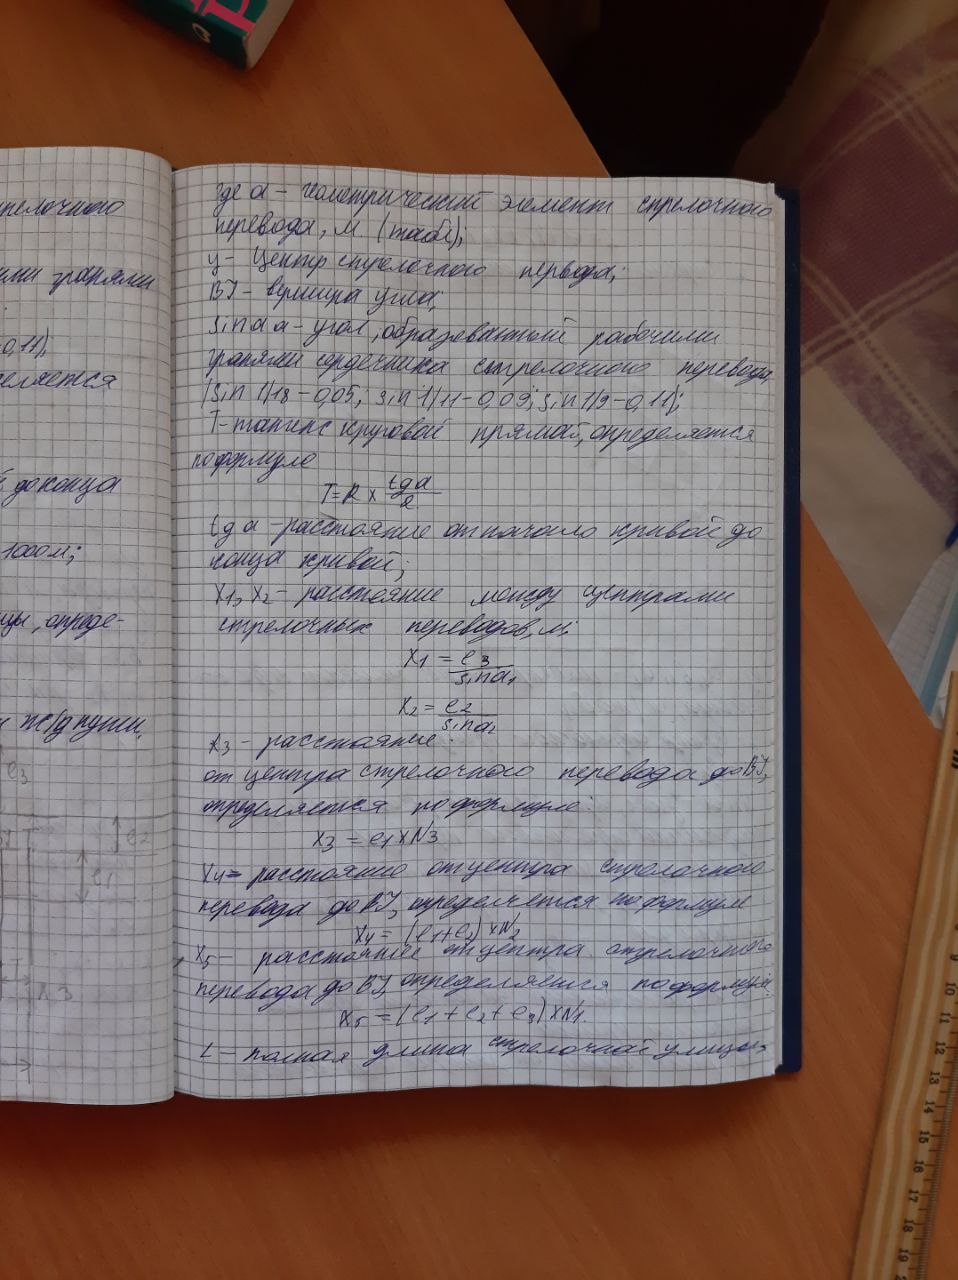 релочного
ими гранями
0,11),
еляется
до конца
1000 м;
цы, опреде-
ж/д пути.
e3
e2
e1
T
X3
где a - геометрический элемент стрелочного
перевода, м (табл);
ц - центр стрелочного перевода;
ВУ - вершина угла;
sin a a - угол, образованный рабочими
гранями сердечника стрелочного перевода,
(sin 1/18 - 0,05; sin 1/11 - 0,09; sin 1/9 - 0,11);
T - тангенс круговой прямой, определяется
по формуле
T = R x tg a / 2
tg a - расстояние от начало кривой до
конца кривой;
X1, X2 - расстояние между центрами
стрелочных переводов, м;
X1 = e3 / sin a1
X2 = e2 / sin a2
X3 - расстояние
от центра стрелочного перевода до ВУ,
определяется по формуле:
X3 = e1 x N3
X4 - расстояние от центра стрелочного
перевода до ВУ, определяется по формуле
X4 = (e1 + e2) x N2
X5 - расстояние от центра стрелочного
перевода до ВУ, определяется по формуле:
X5 = (e1 + e2 + e3) x N1.
L - полная длина стрелочной улицы,
9
10
11
12
13
14
15
16
17
18
19